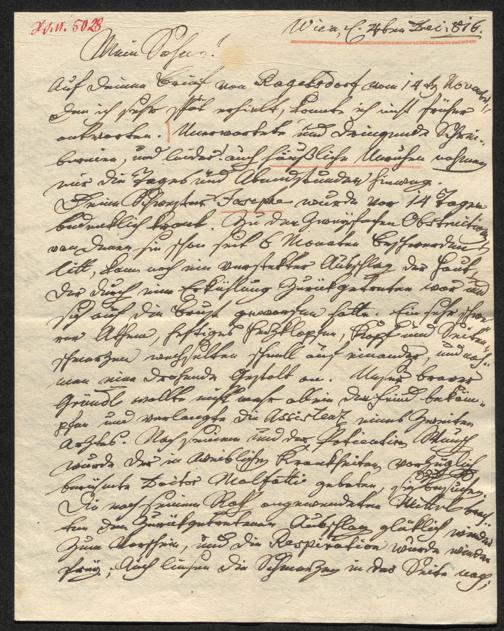 Hs. N. 5028
Wien d. 4ten Dec. 816.
Mein Sohn!
Auf deinen Brief von Ragelsdorf vom 14ten November,
den ich sehr spät erhielt, konnte ich nicht früher
antworten. Unerwartete und dringende Schrei-
bereien, und leider! auch häußliche Unruhen nahmen
mir die Tages und Abendstunden hinweg.
Deine Schwester Josepha wurde vor 14 Tagen
bedenklich krank. Zu den Obstructionen
von denen sie schon seit 6 Monaten Beschwerden
litt, kam noch ein versteckter Ausschlag der Haut,
der durch eine Erkühlung zurückgetreten war und
sich auf die Brust geworfen hatte. Ein sehr schwe-
rer Athem, heftiges Herzklopfen, Kopf und Seiten-
schmerzen wechselten schnell auf einander, und nah-
men eine drohende Gestalt an. Unser braver
Gründl wollte nicht mehr allein den Feind bekäm-
pfen und verlangte die Assistenz eines zweiten
Arztes. Nach seinem und der Patientin Wunsch
wurde der in weiblichen Krankheiten vorzüglich
berühmte Doctor Malfatti gebeten, sie zu besuchen.
Die nach seinem Rath angewendeten Mittel
den zurückgetretenen Ausschlag glücklich wieder
zum Vorschein, und die Respiration wurde wieder
frey; auch ließen die Schmerzen in der Seite nach;